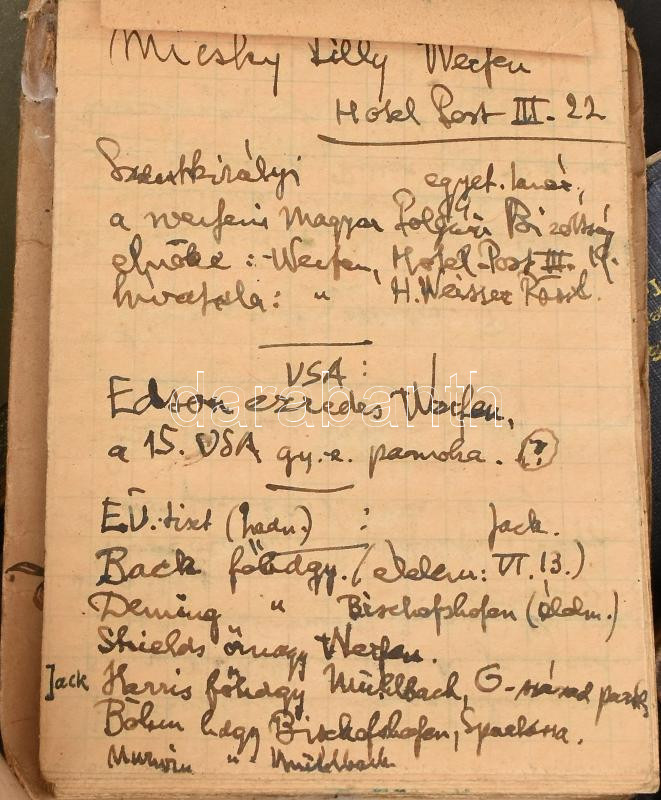 Micsky Lilly Werfen
Hotel Post III. 22
Szentkirályi egyet. tanár,
a werfeni Magyar Polgári Bizottság
elnöke : Werfen, Hotel Post III. 19.
hivatala: " H. Weisses Rössl.
VSA :
Edson ezredes Werfen,
a 15. VSA gy. e. pcsnoka. (?)
ÉÜ. tiszt (hadn.) : Jack.
Back főhdgy. (élelm: VI. 13.)
Deming " Bischofshofen (élelm.)
Shields őrnagy Werfen.
Jack Harris főhdgy Mühlbach, G-század
Böhm hdgy Bischofshofen,
" Mühlbach
darabanth